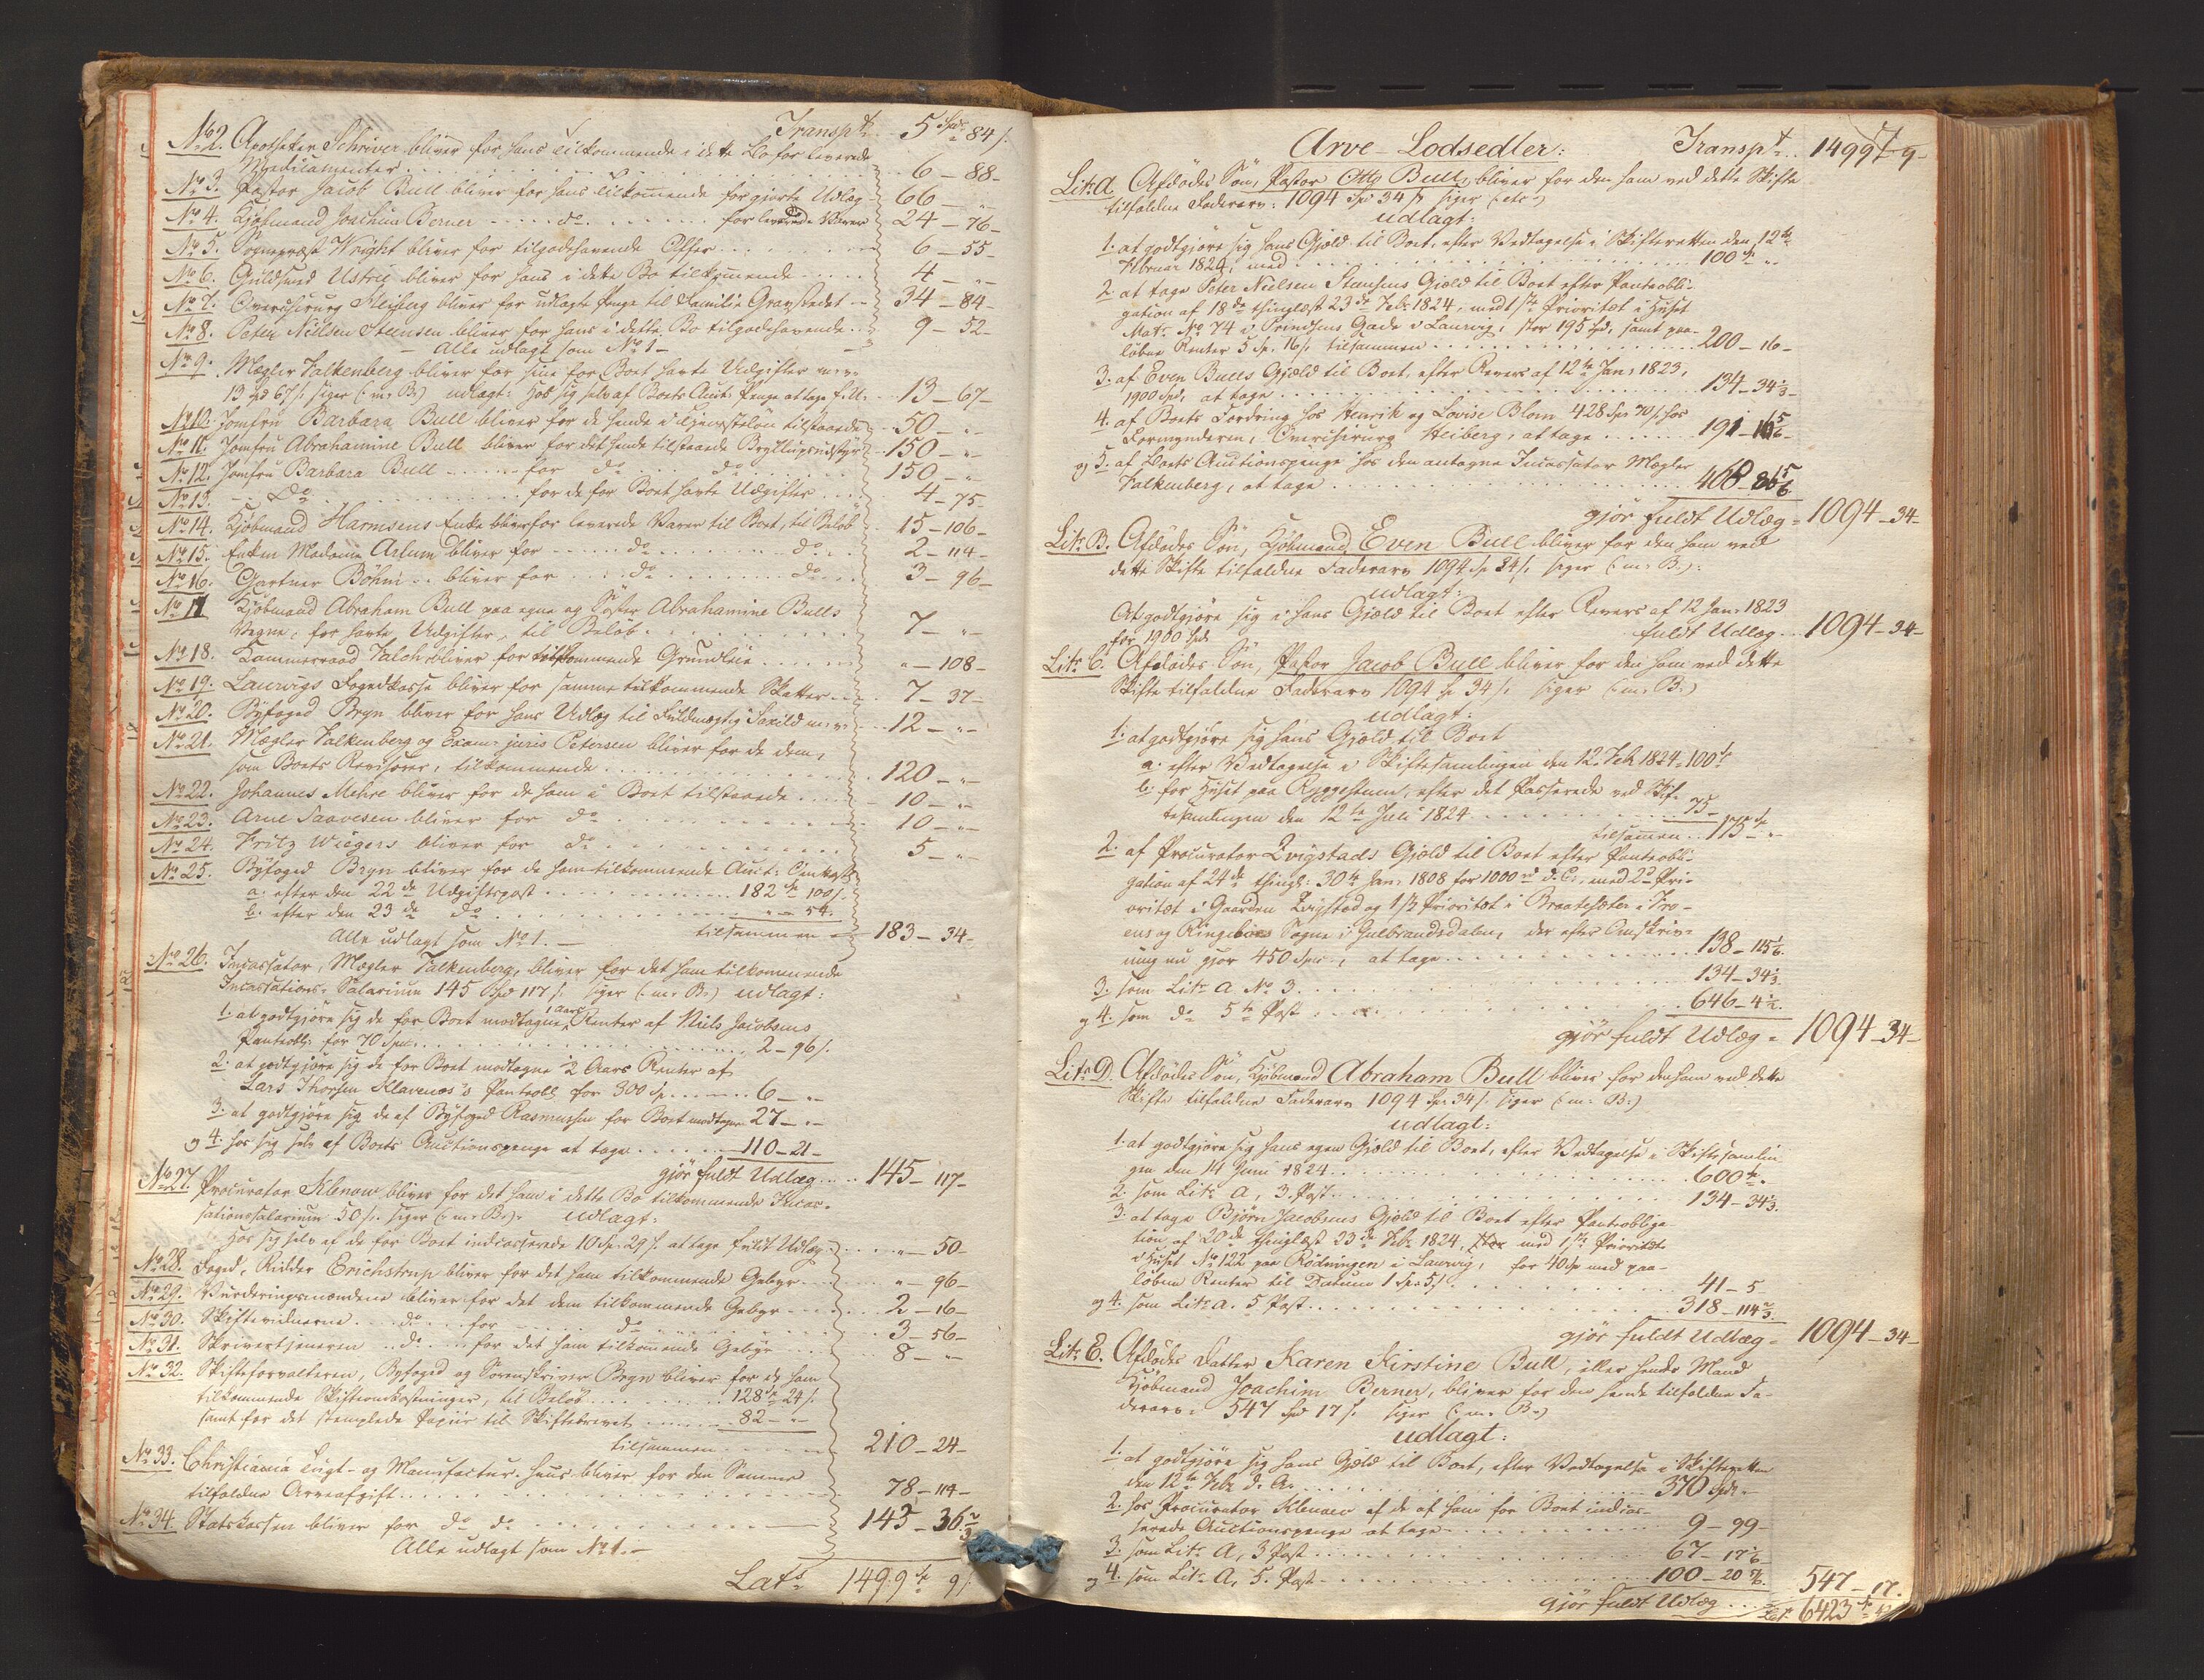 Transpt. 5 Spd. 84 s.
No 2. Apotheker Schriver bliver for hans Tilkommende i dette Bo for leverede
Medicamenter . . . 6 - 88 -
No 3. Pastor Jacob Bull bliver for hans Tilkommende for gjorte Udlæg 66 - " -
No 4. Kjøbmand Joachim Berner - - - do . . . for leverede Varer 24 - 76 -
No 5. Sognepræst Wright bliver for tilgodehavende Offer . . . 6 - 55 -
No 6. Guldsmed Ustrie bliver for hans i dette Bo tilkommende . . . 4 - " -
No 7. Overchirurg Heiberg bliver for udlagte Penge til Familie Gravstedet - 34 - 84 -
No 8. Peter Nielsen Steensen bliver for hans i dette Bo tilgodehavende . . 9 - 52 -
- Alle udlagt som No 1 -
No 9. Mægler Falkenberg bliver for sine for Boet havte Udgifter m: v:
13 Spd 67 s. siger (: m: B:) udlagt: Hos sig selv af Boets Auct: Penge at tage fuldt 13 - 67 -
No 10. Jomfru Barbara Bull bliver for de hende i Tjenesteløn tilstaaede 50 - " -
No 11. Jomfru Abrahamine Bull bliver for det hende tilstaaede Bryllupsudstyr 150 - " -
No 12. Jomfru Barbara Bull - - - for do . . . do . . . 150 - " -
No 13. - Do . . . for de for Boet havte Udgifter . . . 4 - 75 -
No 14. Kjøbmand Harmsens Enke bliver for leverede Varer til Boet, til Beløb 15 - 106 -
No 15. Enken Madame Arlum bliver for - - - do . . . do . . 2 - 114 -
No 16. Gartner Böhm . . bliver for . . . do . . . do . . 3 - 96 -
No 17 Kjøbmand Abraham Bull paa egne og Søster Abrahamine Bulls
Vegne, for havte Udgifter, til Beløb . . . 7 - " -
No 18. Kammerraad Falch bliver for tilkommende Grundleie . . . " - 108 -
No 19. Laurvigs Fogedkasse bliver for samme tilkommende Skatter . . . 7 - 37 -
No 20. Byfoged Bryn bliver for hans Udlæg til Fuldmægtig Saxild m: v: 12 - " -
No 21. Mægler Falkenberg og Exam: juris Petersen bliver for de dem,
som Boets Revisorer, tilkommende . . . 120 - " -
No 22. Johannes Mehre bliver for de ham i Boet tilstaaede . . . 10 - " -
No 23. Arne Saavesen bliver for do . . . 10 - " -
No 24. Fritz Wiegers bliver for do . . . 5 - " -
No 25. Byfoged Bryn bliver for de ham tilkommende Auct: Omkost:
a. efter den 22 de Udgiftspost . . . 182 Sp 100 s.
b. efter den 23 de do . . . " - 54.
Alle udlagt som No 1. - tilsammen - 183 - 34 -
No 26. Incassator, Mægler Falkenberg, bliver for det ham tilkommende
Incassations-Salarium 145 Spd 117 s. siger (: m: B:) udlagt:
1. at godtgjøre sig de for Boet modtagne 1 Aars Renter af Niels Jacobsens
Panteobl: for 70 Spd . . . 2 - 96 s.
2. at godtgjøre sig de for Boet modtagne 2 Aars Renter af
Lars Thorsen Klavenæs's Panteobl: for 300 Sp . . . 6 - " -
3. at godtgjøre sig de af Byfoged Rasmussen for Boet modtagne 27 - " -
og 4. hos sig selv af Boets Auctionspenge at tage . . . 110 - 21 -
gjør fuldt Udlæg . . . 145 - 117 -
No 27. Procurator Klenow bliver for det ham i dette Bo tilkommende Incas-
sationssalarium 50 s. siger (: m: B:) udlagt:
Hos sig selv af de for Boet indcasserede 10 Sp 29 s. at tage fuldt Udlæg . . . " - 50 -
No 28. Foged, Ridder Erichstrup bliver for det ham tilkommende Gebyr . . . " - 96 -
No 29. Vurderingsmændene bliver for det dem tilkommende Gebyr . . . 2 - 16 -
No 30. Skiftevidnerne . . . do . . . for . . . do . . . 3 - 56 -
No 31. Skrivertjeneren . . do . . . for det ham tilkommende Gebyr . . . 8 - " -
No 32. Skifteforvalteren, Byfoged og Sorenskriver Bryn bliver for de ham
tilkommende Skifteomkostninger, til Beløb . . . 128 Sp 24 s.
samt for det stemplede Papiir til Skiftebrevet . . . 82 - " -
tilsammen . . . 210 - 24 -
No 33. Christiania Tugt- og Manufactur-Huus bliver for den Samme
tilfaldne Arveafgift . . . 78 - 114 -
No 34. Statskassen bliver for do do . . . 143 - 36 2/3
Alle udlagt som No 1. -
Lats 1499 Sp 9 s.
Arve-Lodsedler: Transpt. . 1499 Sp - 9 -
Litr. A. Afdødes Søn, Pastor Otto Bull, bliver for den ham ved dette Skifte
tilfaldne Faderarv: 1094 Spd 34 s. siger (: etc :)
udlagt:
1. at godtgjøre sig hans Gjæld til Boet, efter Vedtagelse i Skifteretten den 12te
Februar 1824, med . . . 100 Sp " -
2. at tage Peter Nielsen Stensens Gjæld til Boet efter Panteobli-
gation af 18 de thinglæst 23 de Febr 1824, med 1ste Prioritet i Huset
Matr. No 74 i Prindsens Gade i Laurvig, stor 195 Spd, samt paa-
løbne Renter 5 Sp. 16 s. tilsammen . . . 200 - 16 -
3. af Even Bulls Gjæld til Boet, efter Revers af 12te Jan: 1823,
1900 Spd, at tage . . . 134 - 34 1/3 -
4. af Boets Fordring hos Henrik og Lovise Blom 428 Spd 70 s. hos
Formynderen, Overchirurg Heiberg, at tage . . . 191 - 16 5/6 -
og 5. af Boets Auctionspenge hos den antagne Incassator Mægler
Falkenberg, at tage . . . 468 - 86 5/6
gjør fuldt Udlæg = 1094 - 34 -
Litr. B. Afdødes Søn, Kjøbmand Even Bull bliver for den ham ved
dette Skifte tilfaldne Faderarv 1094 Sp 34 s. siger (: m: B. :):
udlagt:
At godtgjøre sig i hans Gjæld til Boet efter Revers af 12 Jan: 1823
for 1900 Spd fuldt Udlæg . . 1094 - 34 -
Litr. C. Afdødes Søn, Pastor Jacob Bull bliver for den ham ved dette
Skifte tilfaldne Faderarv 1094 Sp 34 s. siger (: m: B:)
udlagt:
1. at godtgjøre sig hans Gjæld til Boet
a. efter Vedtagelse i Skiftesamlingen den 12. Feb 1824 100 Sp
b. for Huset paa Ryggestuen, efter det Passerede ved Skif-
tesamlingen den 12te Juli 1824 . . . 75 -
tilsammen . . 175 Sp " -
2. af Procurator Qvigstads Gjæld til Boet efter Panteobli-
gation af 24 de thingl: 30te Jan: 1808 for 1000 rd d. C., med 2d Pri-
oritet i Gaarden Qvigstad og 1ste Prioritet i Braatesæter i Fro-
ens og Ringeboes Sogne i Gulbrandsdalen, der efter Omskriv-
ning nu gjør 450 Spd, at tage . . . 138 - 115 1/6
3. som Litr. A No 3 . . . 134 - 34 1/3
og 4. som do 5te Post . . . 646 - 4 1/2.
gjør fuldt Udlæg = 1094 - 34 -
Litr. D. Afdødes Søn, Kjøbmand Abraham Bull bliver for den ham ved dette
Skifte tilfaldne Faderarv 1094 Sp 34 s. siger (: m: B:)
udlagt:
1. at godtgjøre sig hans egen Gjæld til Boet, efter Vedtagelse i Skiftesamlin-
gen den 14 Juni 1824 . . . 600 Sp " -
2. som Litr. A, 3. Post . . . 134 - 34 1/3.
3. at tage Bjørn Jacobsens Gjæld til Boet efter Panteobliga-
tion af 20 de thinglæst 23 de Febr 1824, med 1ste Prioritet
i Huset No 122 paa Rødningen i Laurvig, for 40 Sp med paa-
løbne Renter til Datum 1 Sp 5 s . . . 41 - 5
og 4. som Litr. A. 5 Post . . . 318 - 114 2/3.
gjør fuldt Udlæg = 1094 - 34 -
Litr. E. Afdødes Datter Karen Kirstine Bull, eller hendes Mand
Kjøbmand Joachim Berner, bliver for den hende tilfaldne Fa-
derarv: 547 Spd 17 s. siger (: m: B:)
udlagt:
1. at godtgjøre sig hans Gjæld til Boet, efter Vedtagelse i Skifteretten
den 12te Febr d. A. . . . 370 Spd " -
2. hos Procurator Klenow af de af ham for Boet indcas-
serede Auctionspenge at tage . . . 9 - 99 -
3. som Litr. A, 3 Post . . . 67 - 17 1/6 -
og 4. som Litr. A, 5. Post . . . 100 - 20 5/6.
gjør fuldt Udlæg . . . 547 - 17.
Lat. 6423 Sp